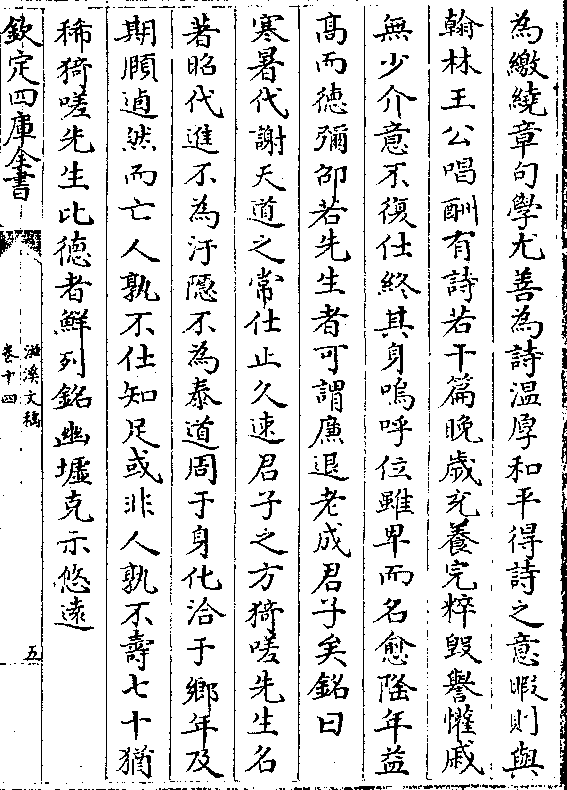 為繳繞章句學尤善為詩温厚和平得詩之意暇則與
翰林王公唱酬有詩若干篇晚歲充養完粹毀譽懽戚
無少介意不復仕終其身嗚呼位雖卑而名愈隆年益
髙而德彌卲若先生者可謂廉退老成君子矣銘曰
寒暑代謝天道之常仕止久速君子之方猗嗟先生名
著昭代進不為汙隱不為泰道周于身化洽于鄉年及
期頤逌然而亡人孰不仕知足或非人孰不壽七十猶
稀猗嗟先生比德者鮮列銘幽墟克示悠遠
欽定四庫全書
滋溪文稿
卷十四
五